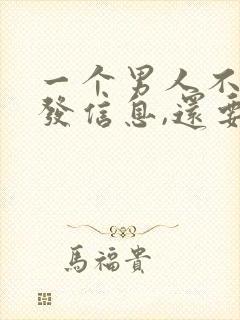 一个男人不
發信息,還要
馬福貴